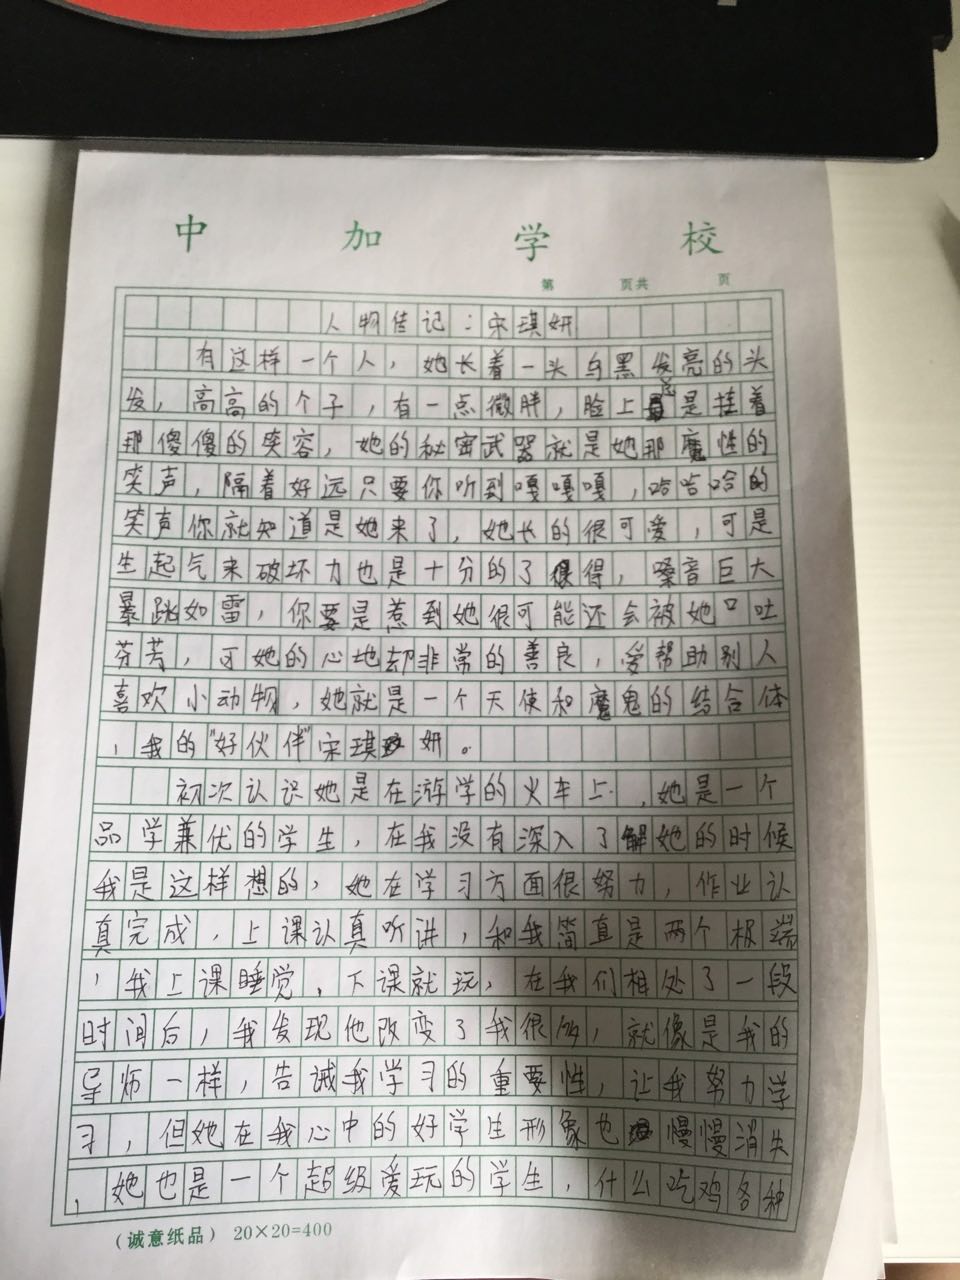 中加学校
第 页共 页
人物传记：宋琪妍
有这样一个人，她长着一头乌黑发亮的头
发，高高的个子，有一点微胖，脸上总是挂着
那傻傻的笑容，她的秘密武器就是她那魔性的
笑声，隔着好远只要你听到嘎嘎嘎，哈哈哈的
笑声你就知道是她来了，她长的很可爱，可是
生起气来破坏力也是十分的了得，嗓音巨大
暴跳如雷，你要是惹到她很可能还会被她口吐
芬芳，可她的心地却非常的善良，爱帮助别人
喜欢小动物，她就是一个天使和魔鬼的结合体
，我的"好伙伴"宋琪妍。
初次认识她是在游学的火车上，她是一个
品学兼优的学生，在我没有深入了解她的时候
我是这样想的，她在学习方面很努力，作业认
真完成，上课认真听讲，和我简直是两个极端
，我上课睡觉，下课就玩，在我们相处了一段
时间后，我发现他改变了我很多，就像是我的
导师一样，告诫我学习的重要性，让我努力学
习，但她在我心中的好学生形象也慢慢消失
，她也是一个超级爱玩的学生，什么吃鸡各种
（诚意纸品） 20×20=400